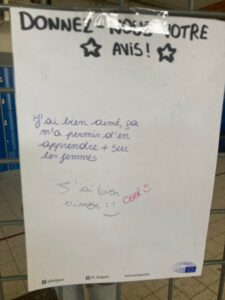 DONNEZ-NOUS VOTRE
AVIS!
J'ai bien aimé, ça
m'a permis d'en
apprendre + sur
les femmes
J'ai bien
aimer!!
Cool